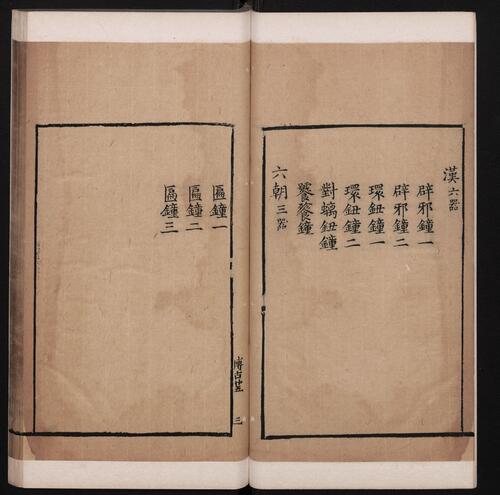 漢六器
辟邪鐘一
辟邪鐘二
環鈕鐘一
環鈕鐘二
對螭鈕鐘
饕餮鐘
六朝三器
匾鐘一
匾鐘二
匾鐘三
三